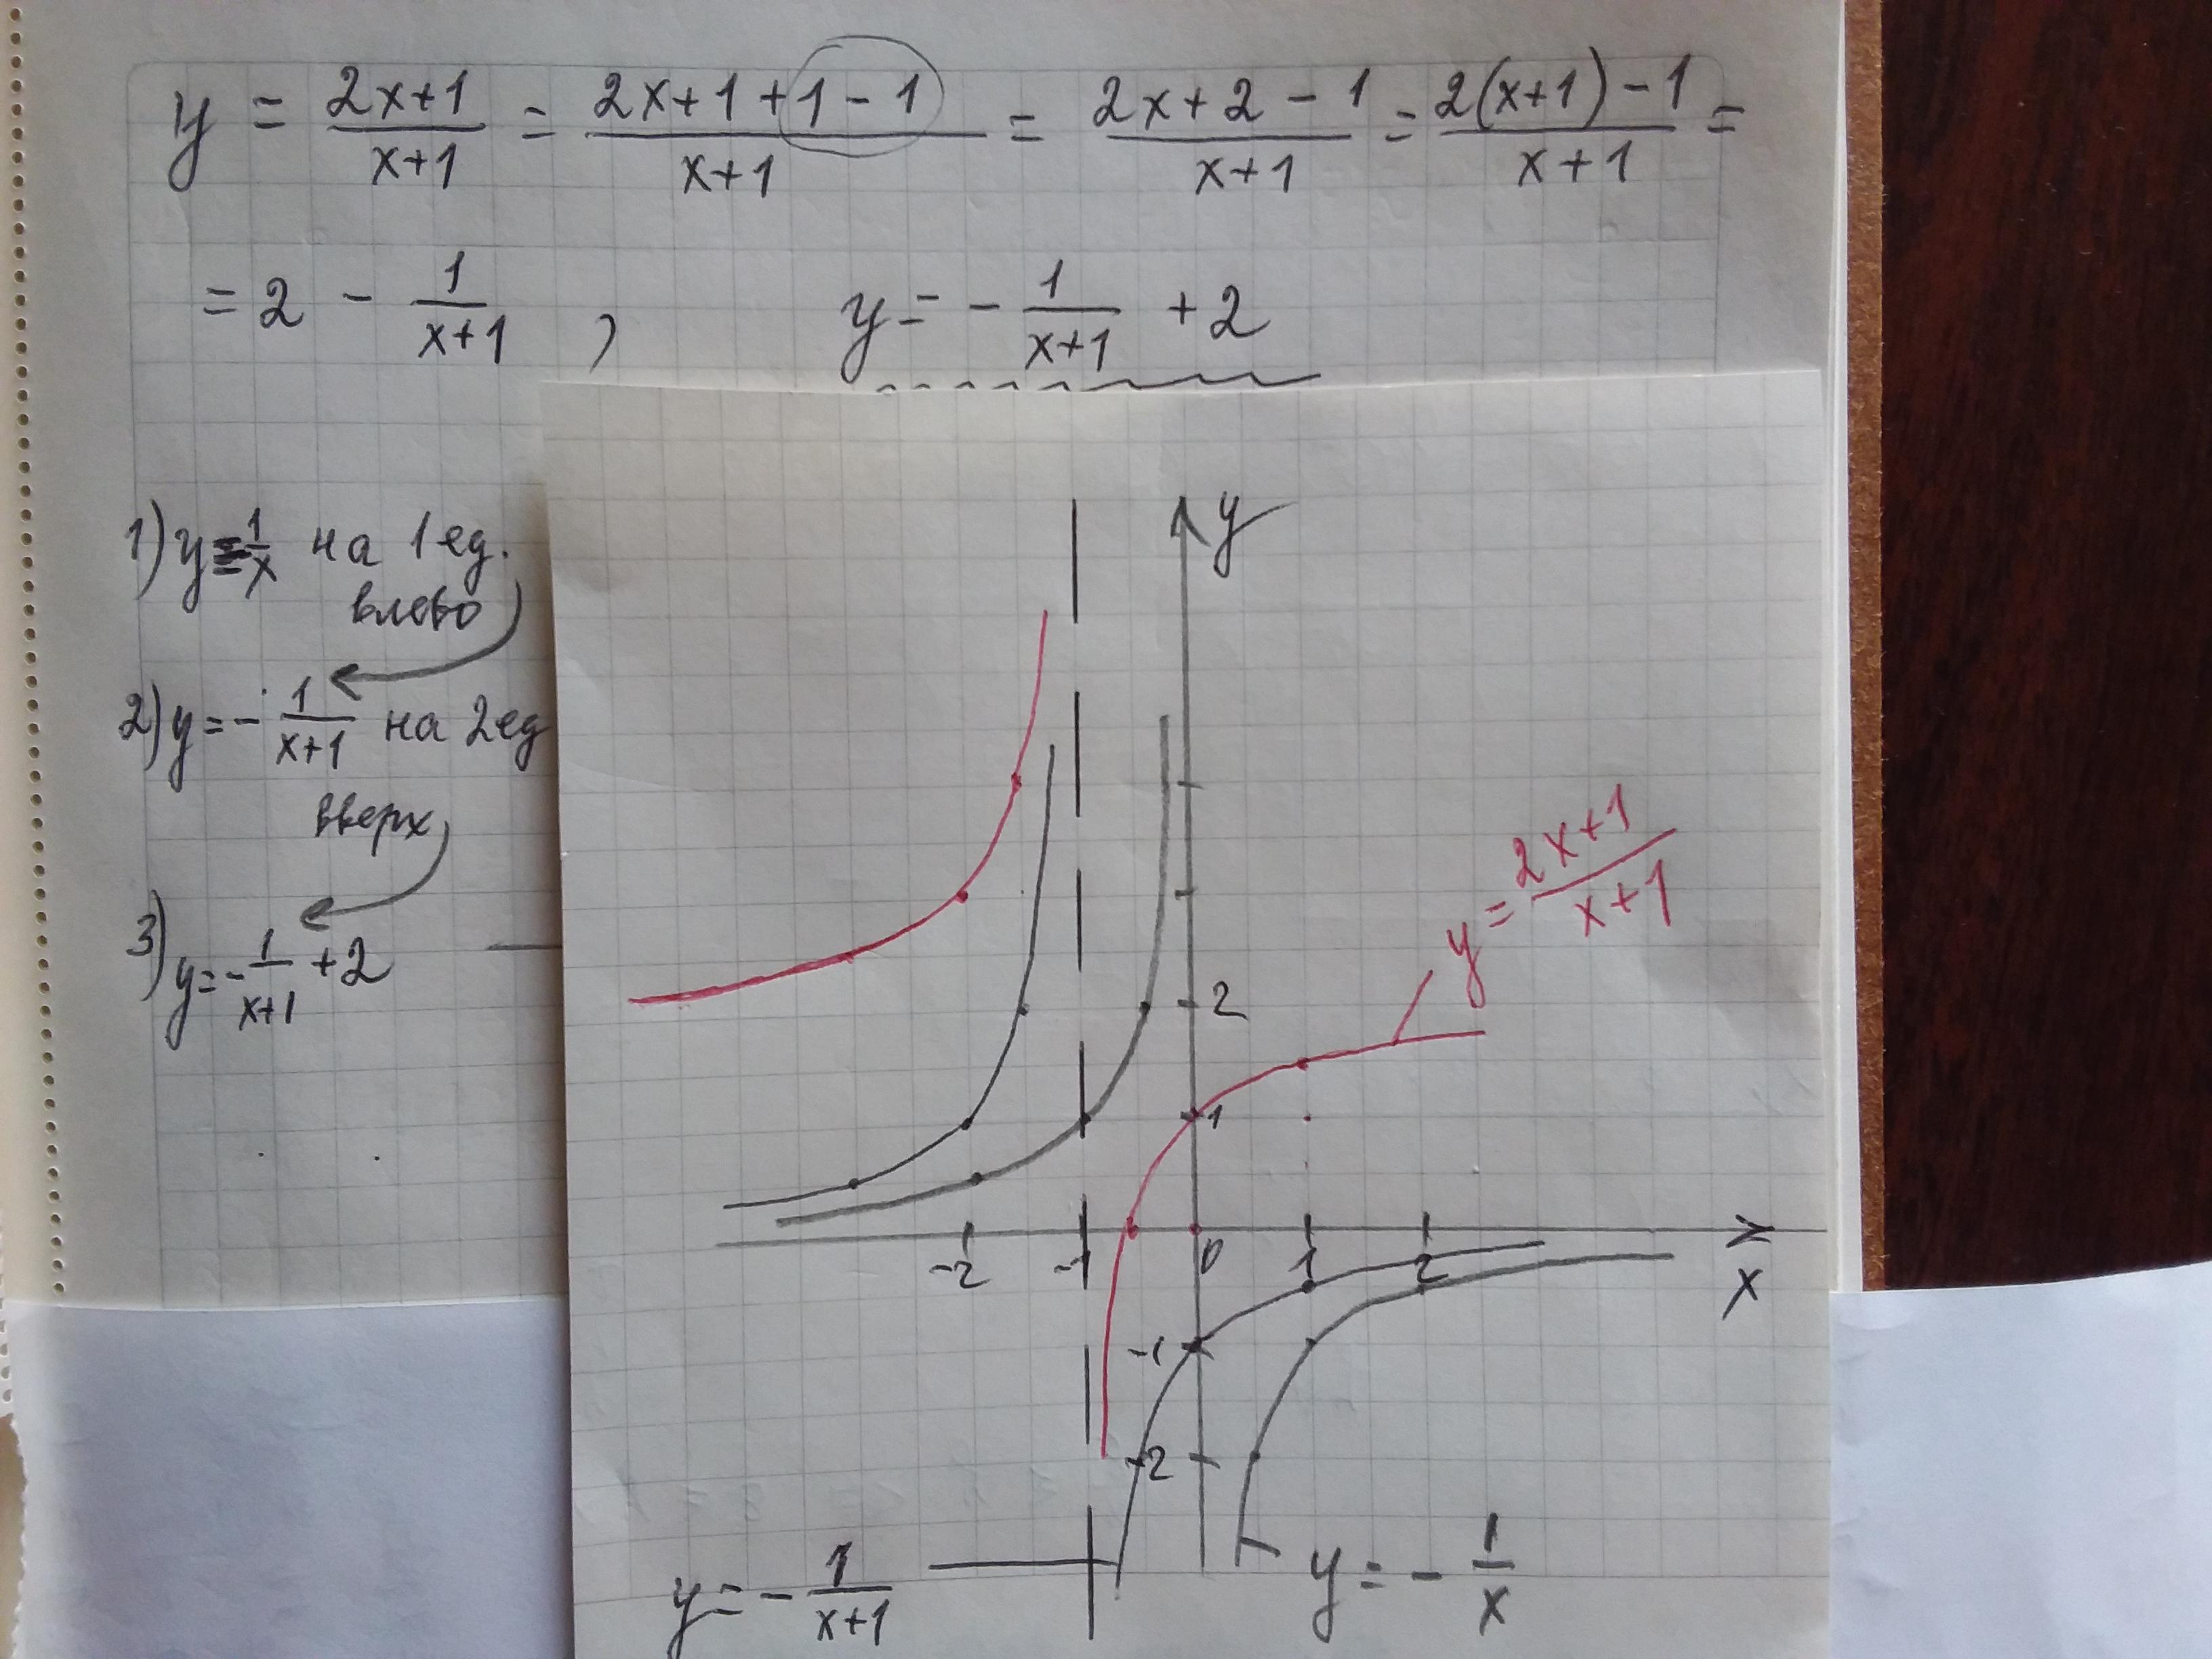 y = (2x+1)/(x+1) = (2x+1+1-1)/(x+1) = (2x+2-1)/(x+1) = (2(x+1)-1)/(x+1) =
= 2 - 1/(x+1) , y = - 1/(x+1) + 2
1) y = -1/x на 1 ед.
влево
2) y = - 1/(x+1) на 2 ед
вверх
3) y = - 1/(x+1) + 2
y
y = (2x+1)/(x+1)
2
1
-2 -1 0 1 2
x
-1
-2
y = - 1/(x+1)
y = - 1/x